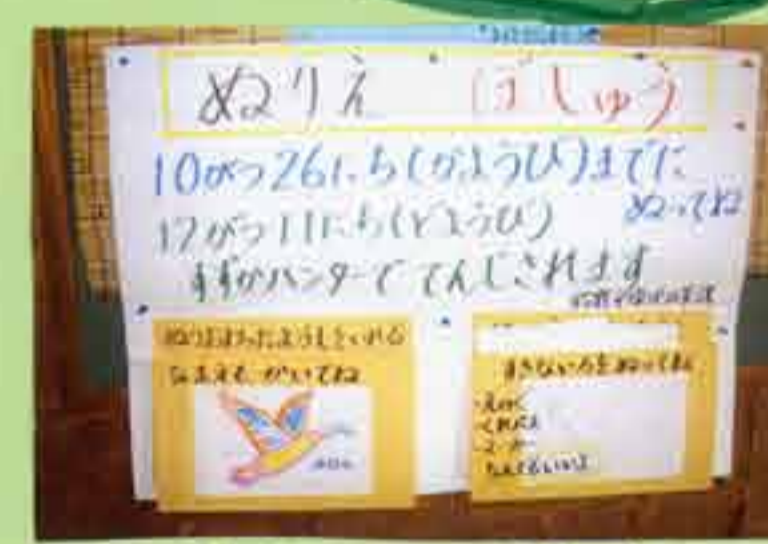 ぬりえ ぼしゅう
10がつ26にち(かようび)までに
ぬってね
12がつ11にち(どようび)
すずかハンターで てんじされます
ぬりおわったようしをいれる
なまえも かいてね
すきないろをぬってね
・えのぐ
・くれよん
なんでもいいよ